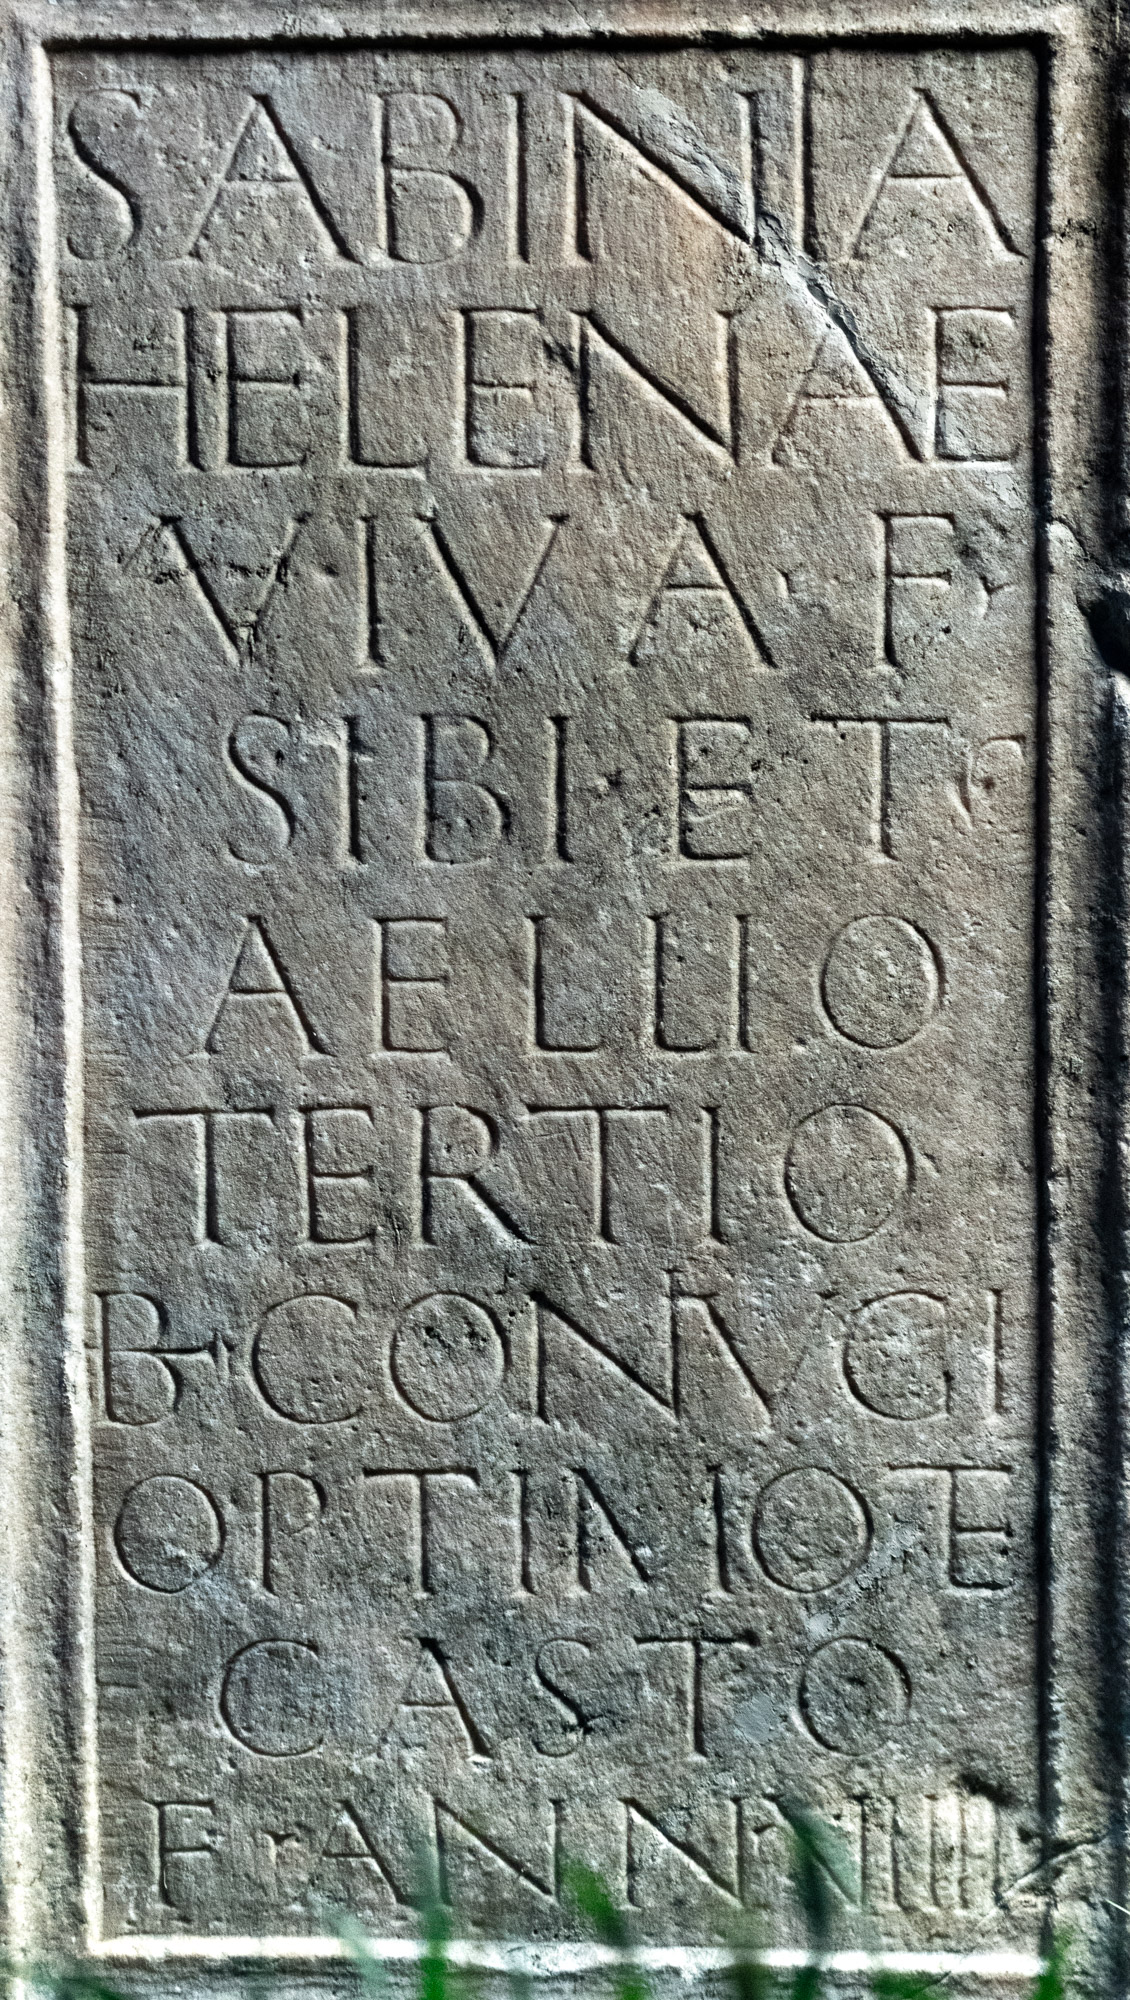 SABINIA
HELENAE
VIVA · F ·
SIBI · ET
AELLIO
TERTIO
B · CONIVGI
OPTIMO ET
CASTO
F · ANN